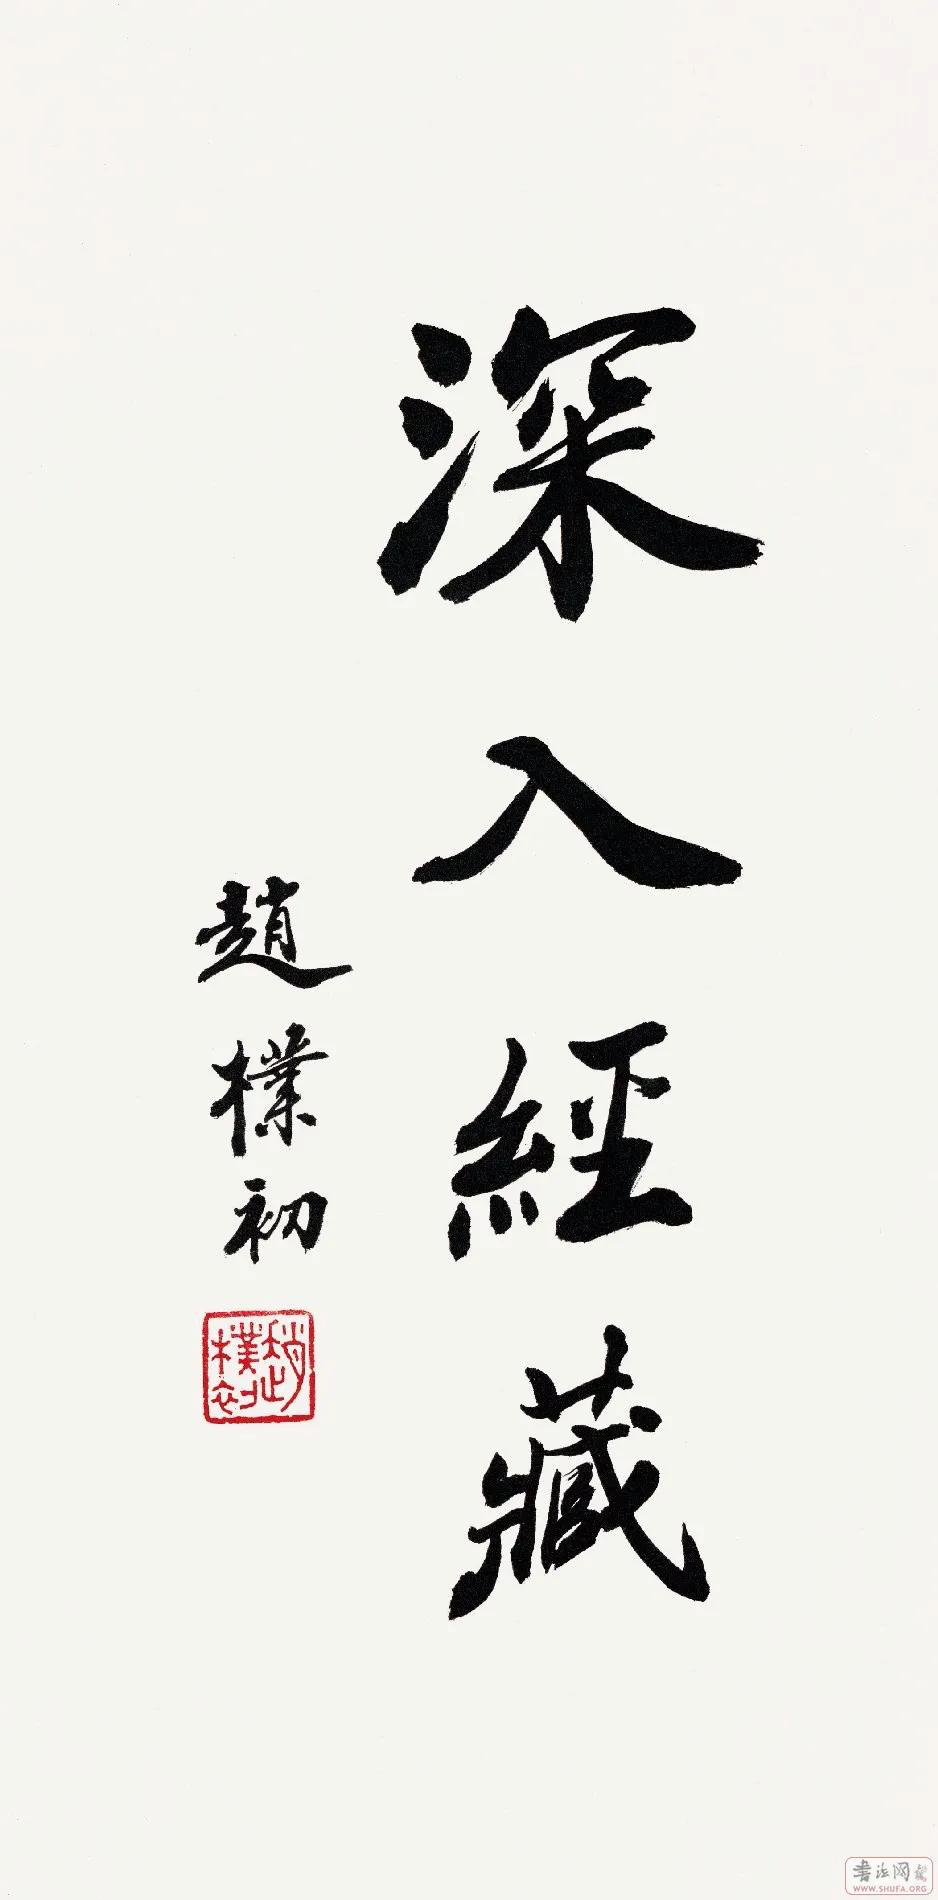 深入經藏
趙樸初
趙樸初
書法网
WWW.SHUFA.ORG